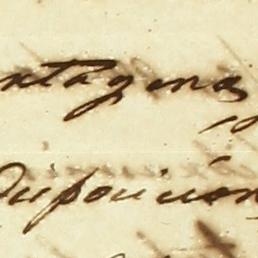 ntagena
Disposición